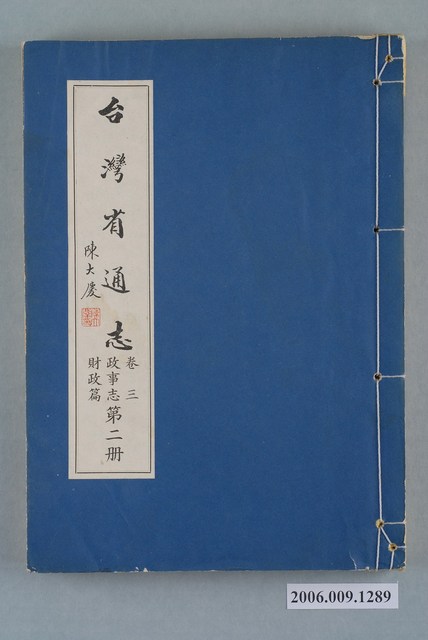 台灣省通志
陳大慶
卷三
政事志
財政篇
第二册
2006.009.1289